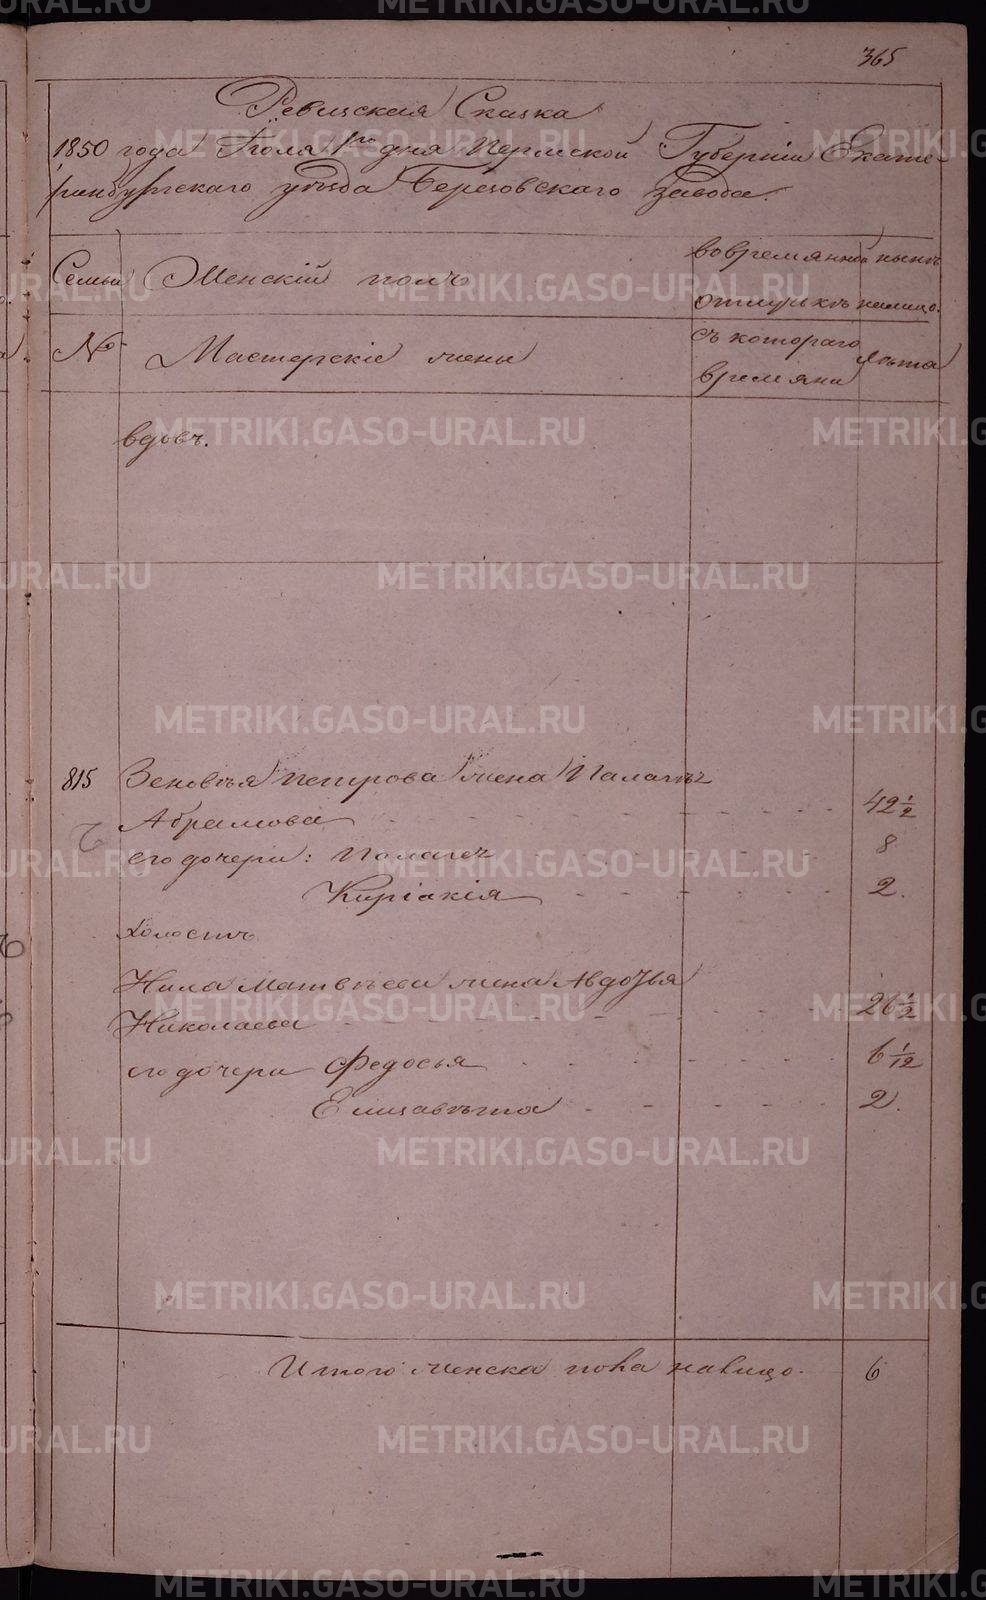 365
Ревизская Сказка
1850 года Iюля 1го дня Пермской Губернiи Екате-
ринбургскаго уѣзда Березовскаго завода.
Семьи Женскiй полъ во времянной нынѣ
отлучкѣ налицо.
№ Мастерскiе жены съ котораго Лѣта
времяни
вдовъ.
815 Зеновья Петрова жена Палагѣя
Абрамова 42 1/2
его дочери: Палагея 8
Кирiакiя 2.
холостъ
Нила Матвѣева жена Авдотья
Николаева 26 1/2
его дочери Федосья 6 1/12
Елизавѣта 2.
Итого женска пола налицо. 6
METRIKI.GASO-URAL.RU